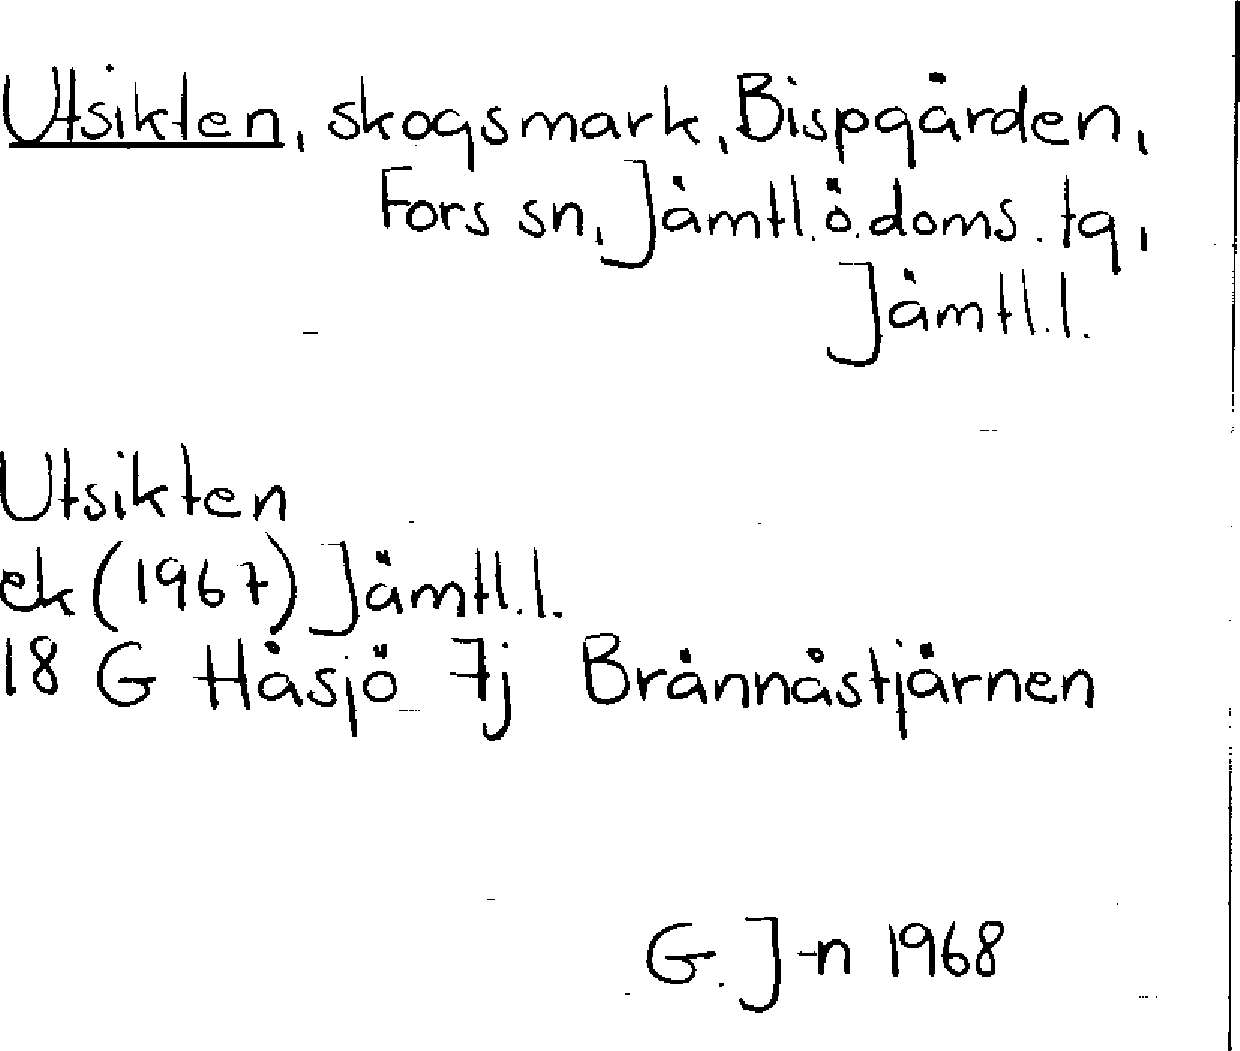 Utsikten, skogsmark, Bispgården,
Fors sn, Jämtl.ö.doms.tg,
Jämtl.l.
Utsikten
ek (1967) Jämtl.l.
18 G Håsjö 7j Brännåstjärnen
G. J-n 1968